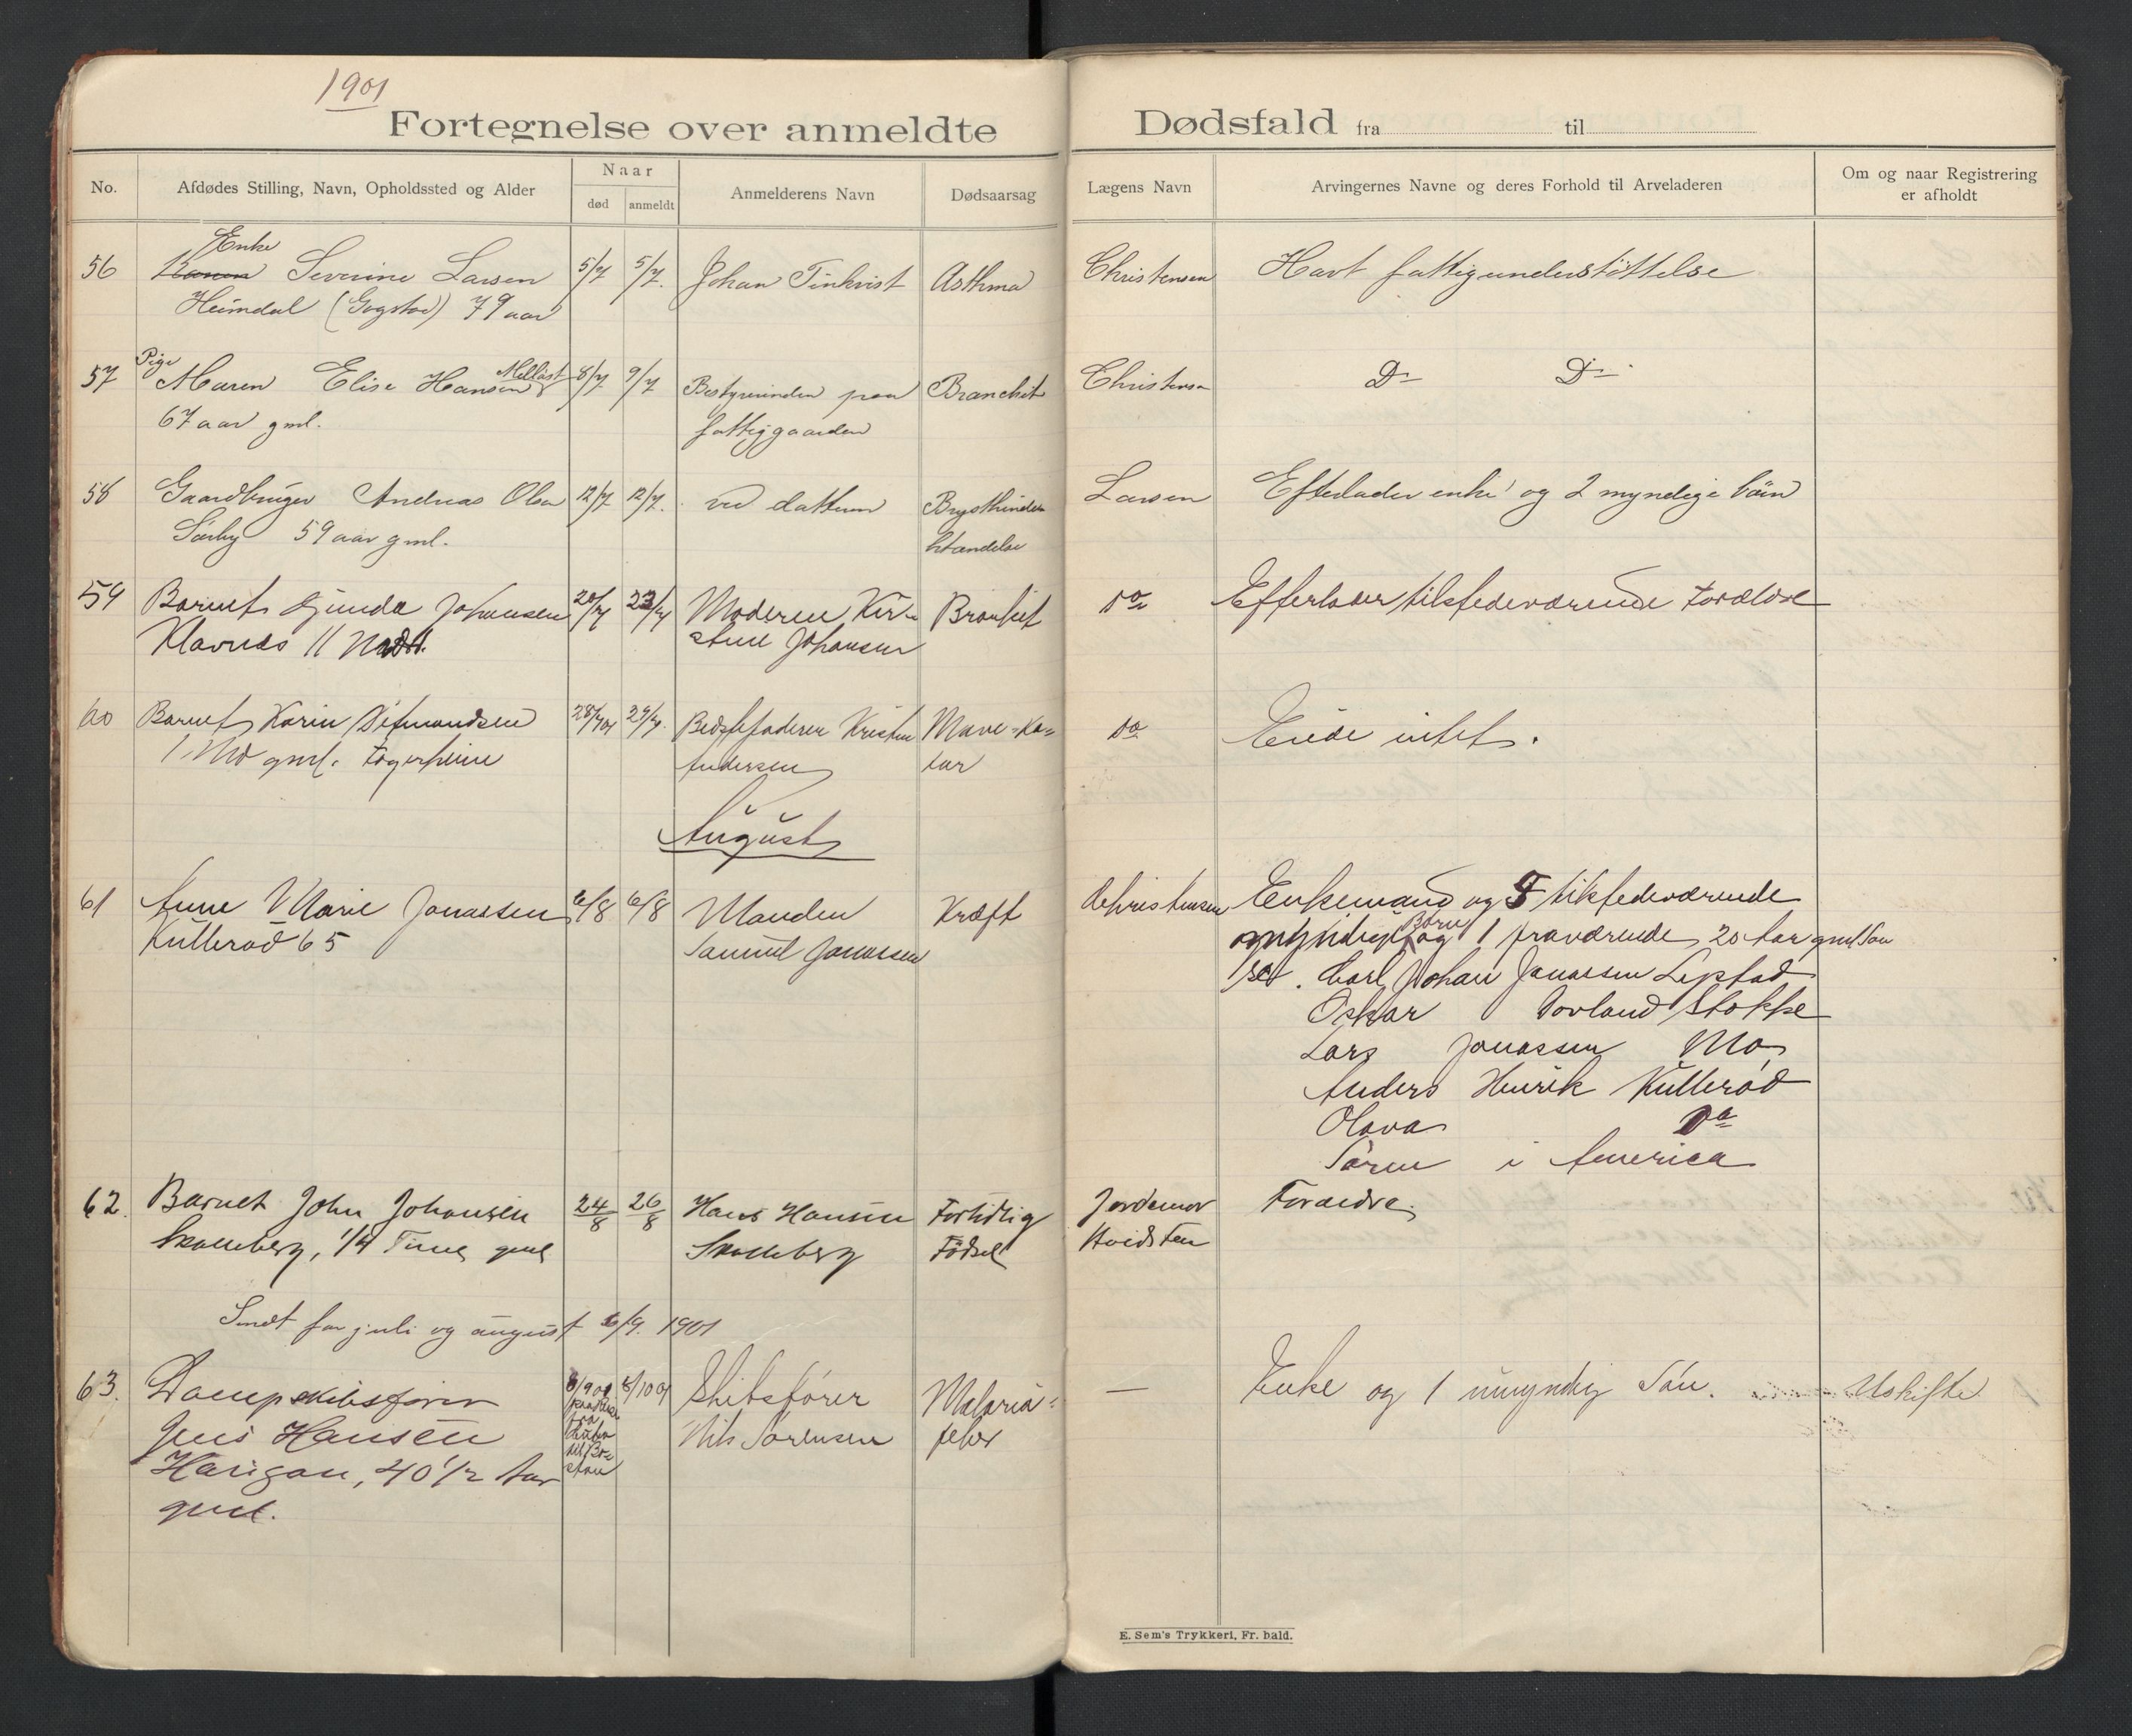 1901
Fortegnelse over anmeldte Dødsfald fra til
No.
Afdødes Stilling, Navn, Opholdssted og Alder
Naar
død
anmeldt
Anmelderens Navn
Dødsaarsag
Lægens Navn
Arvingernes Navne og deres Forhold til Arveladeren
Om og naar Registrering
er afholdt
Enke
56 Konen Severine Larsen 5/7 5/7. Johan Tinkvist Asthma Christensen Havt fattigunderstöttelse
Heimdal (Gogstad) 79 aar
Pige
57 Maren Elise Hansen 8/7 9/7 Bestyrerinden paa Bronchit Christensen Do Do
67 aar gml. fattiggaarden
58 Gaardbruger Andreas Olsen 12/7 12/7. ved datteren Larsen Efterlader enke og 2 myndige börn
59 aar gml.
59 Barnet Gunda Johansen 20/7 23/7 Moderen Kir- Bronkit Do Efterlader tilstedeværende Forældre
Klavnes 11 Mdr. stine Johansen
60 Barnet Karin Sifmundsen 28/7 01 29/7. Bedstefaderen Kristen Mave-Ka- Do Eiede intet.
1 Md gml. Fagerheim Andersen tar
August
61 Anne Marie Jonassen 6/8 6/8 Manden Kræft Christensen Enkemand og 5 tilstedeværende
Kullerød 65 Samuel Jonassen myndige Børn og 1 fraværende 20 Aar gml Søn
Carl Johan Jonassen
Oskar Stokke
Lars Jonassen Mo
Anders Henrik Kullerød
Olava Do
Søren i America
62. Barnet John Johansen 24/8 26/8 Hans Hansen Fortidlig Jordemor Forældre.
Skolleberg, 1/4 Time gml Skolleberg Födsel Hvidsten
Sendt for juli og august 6/9. 1901
63. Dampskibsfører 8/9 01 8/10 01 Skibsfører Malaria- — Enke og 1 umyndig Søn. Uskifte
Jens Hansen paa Reise fra Cuba til Bo- ston Nils Sørensen feber
Haugan, 40 1/2 Aar
gml.
E. Sem's Trykkeri, Fr. hald.